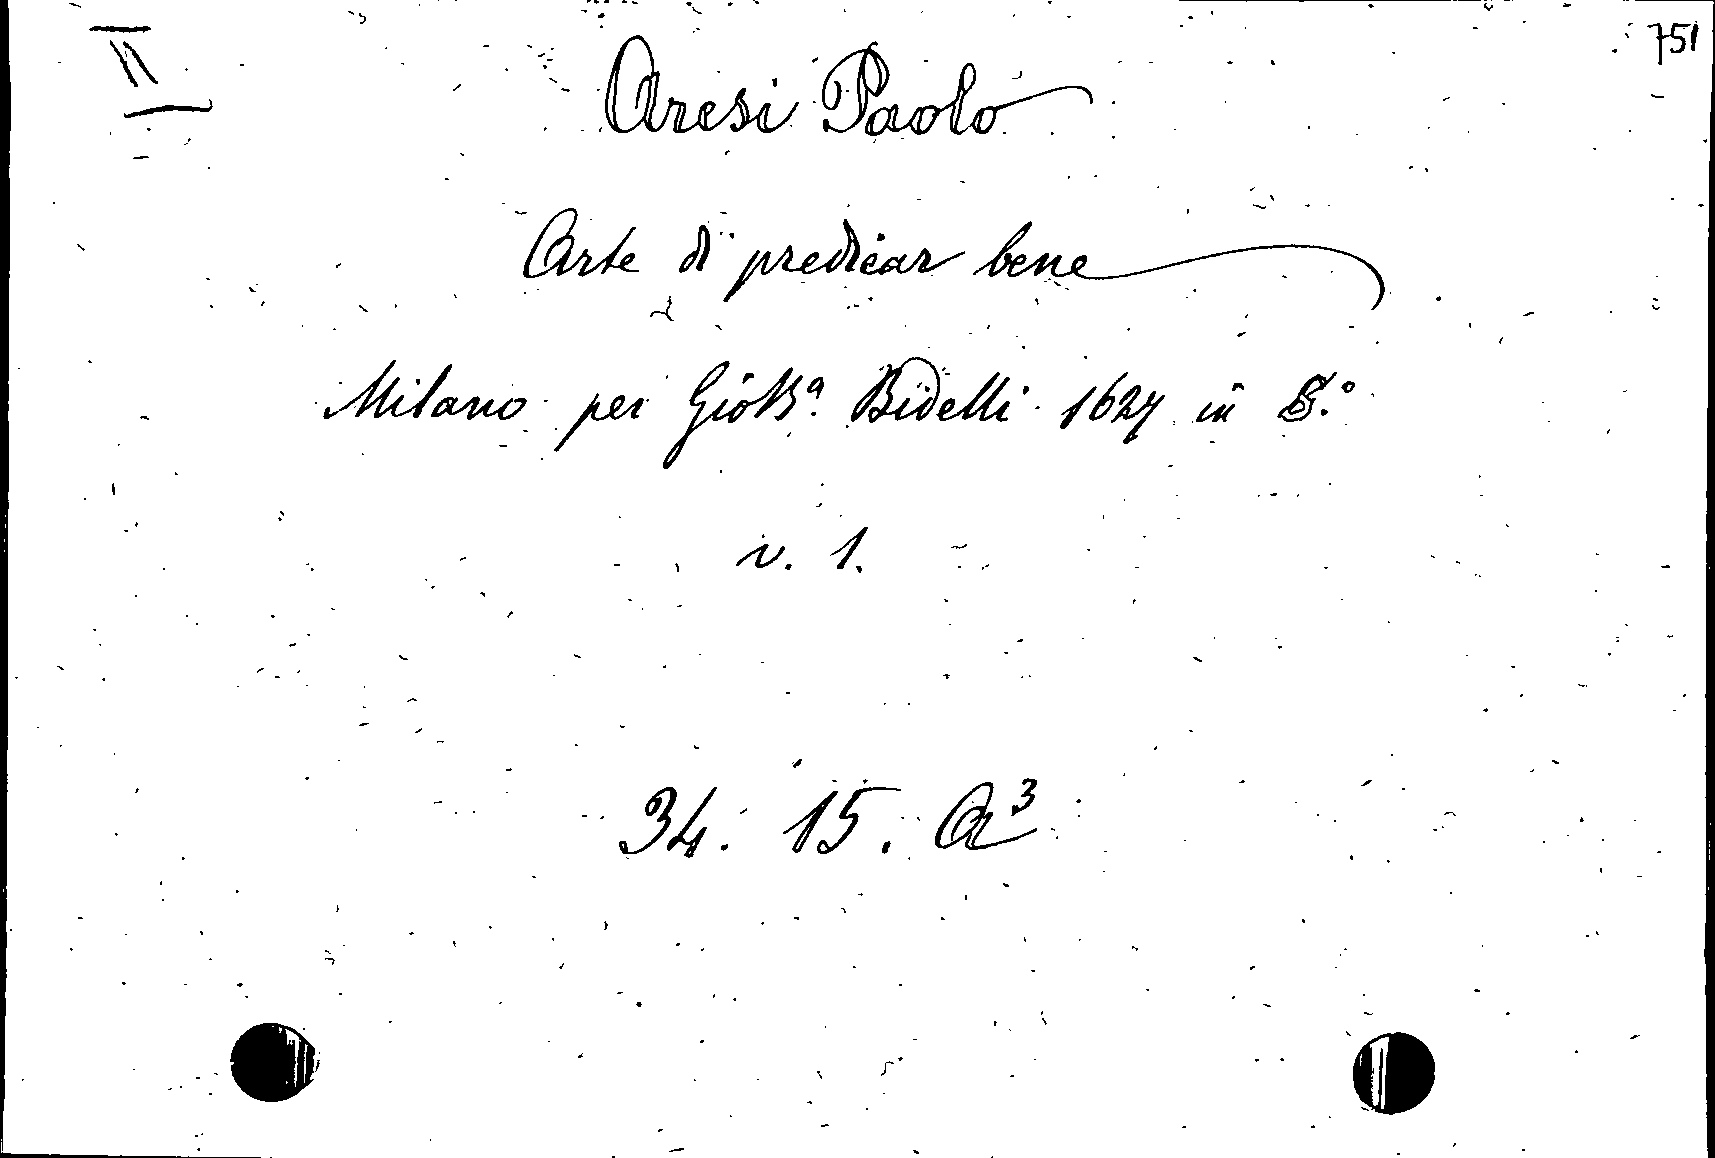 II
751
Aresi Paolo
Arte di predicar bene
Milano per Gio Bª. Bidelli 1627 in 8.°
v. 1.
34. 15. A³